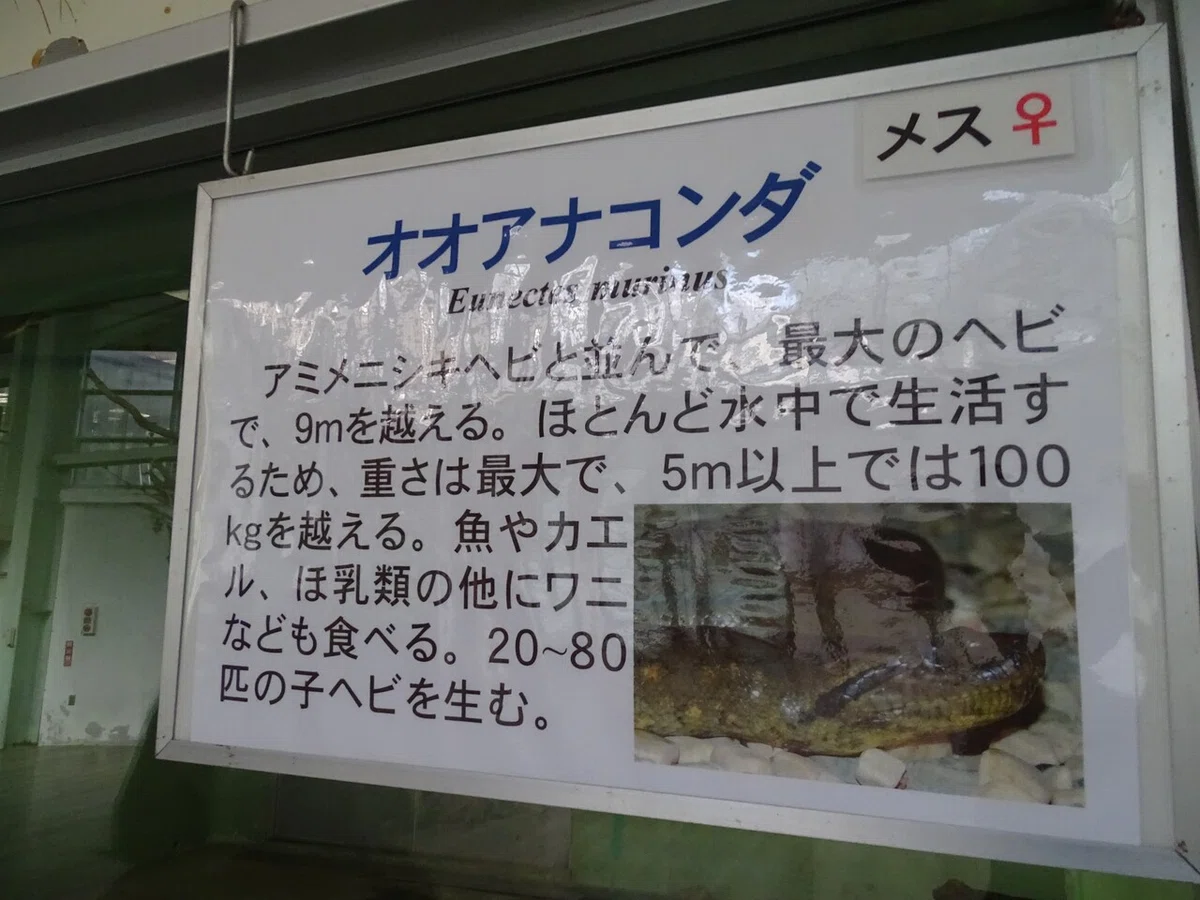 メス♀
オオアナコンダ
Eunectes murinus
アミメニシキヘビと並んで、最大のヘビ
で、9mを越える。ほとんど水中で生活す
るため、重さは最大で、5m以上では100
kgを越える。魚やカエ
ル、ほ乳類の他にワニ
なども食べる。20~80
匹の子ヘビを生む。